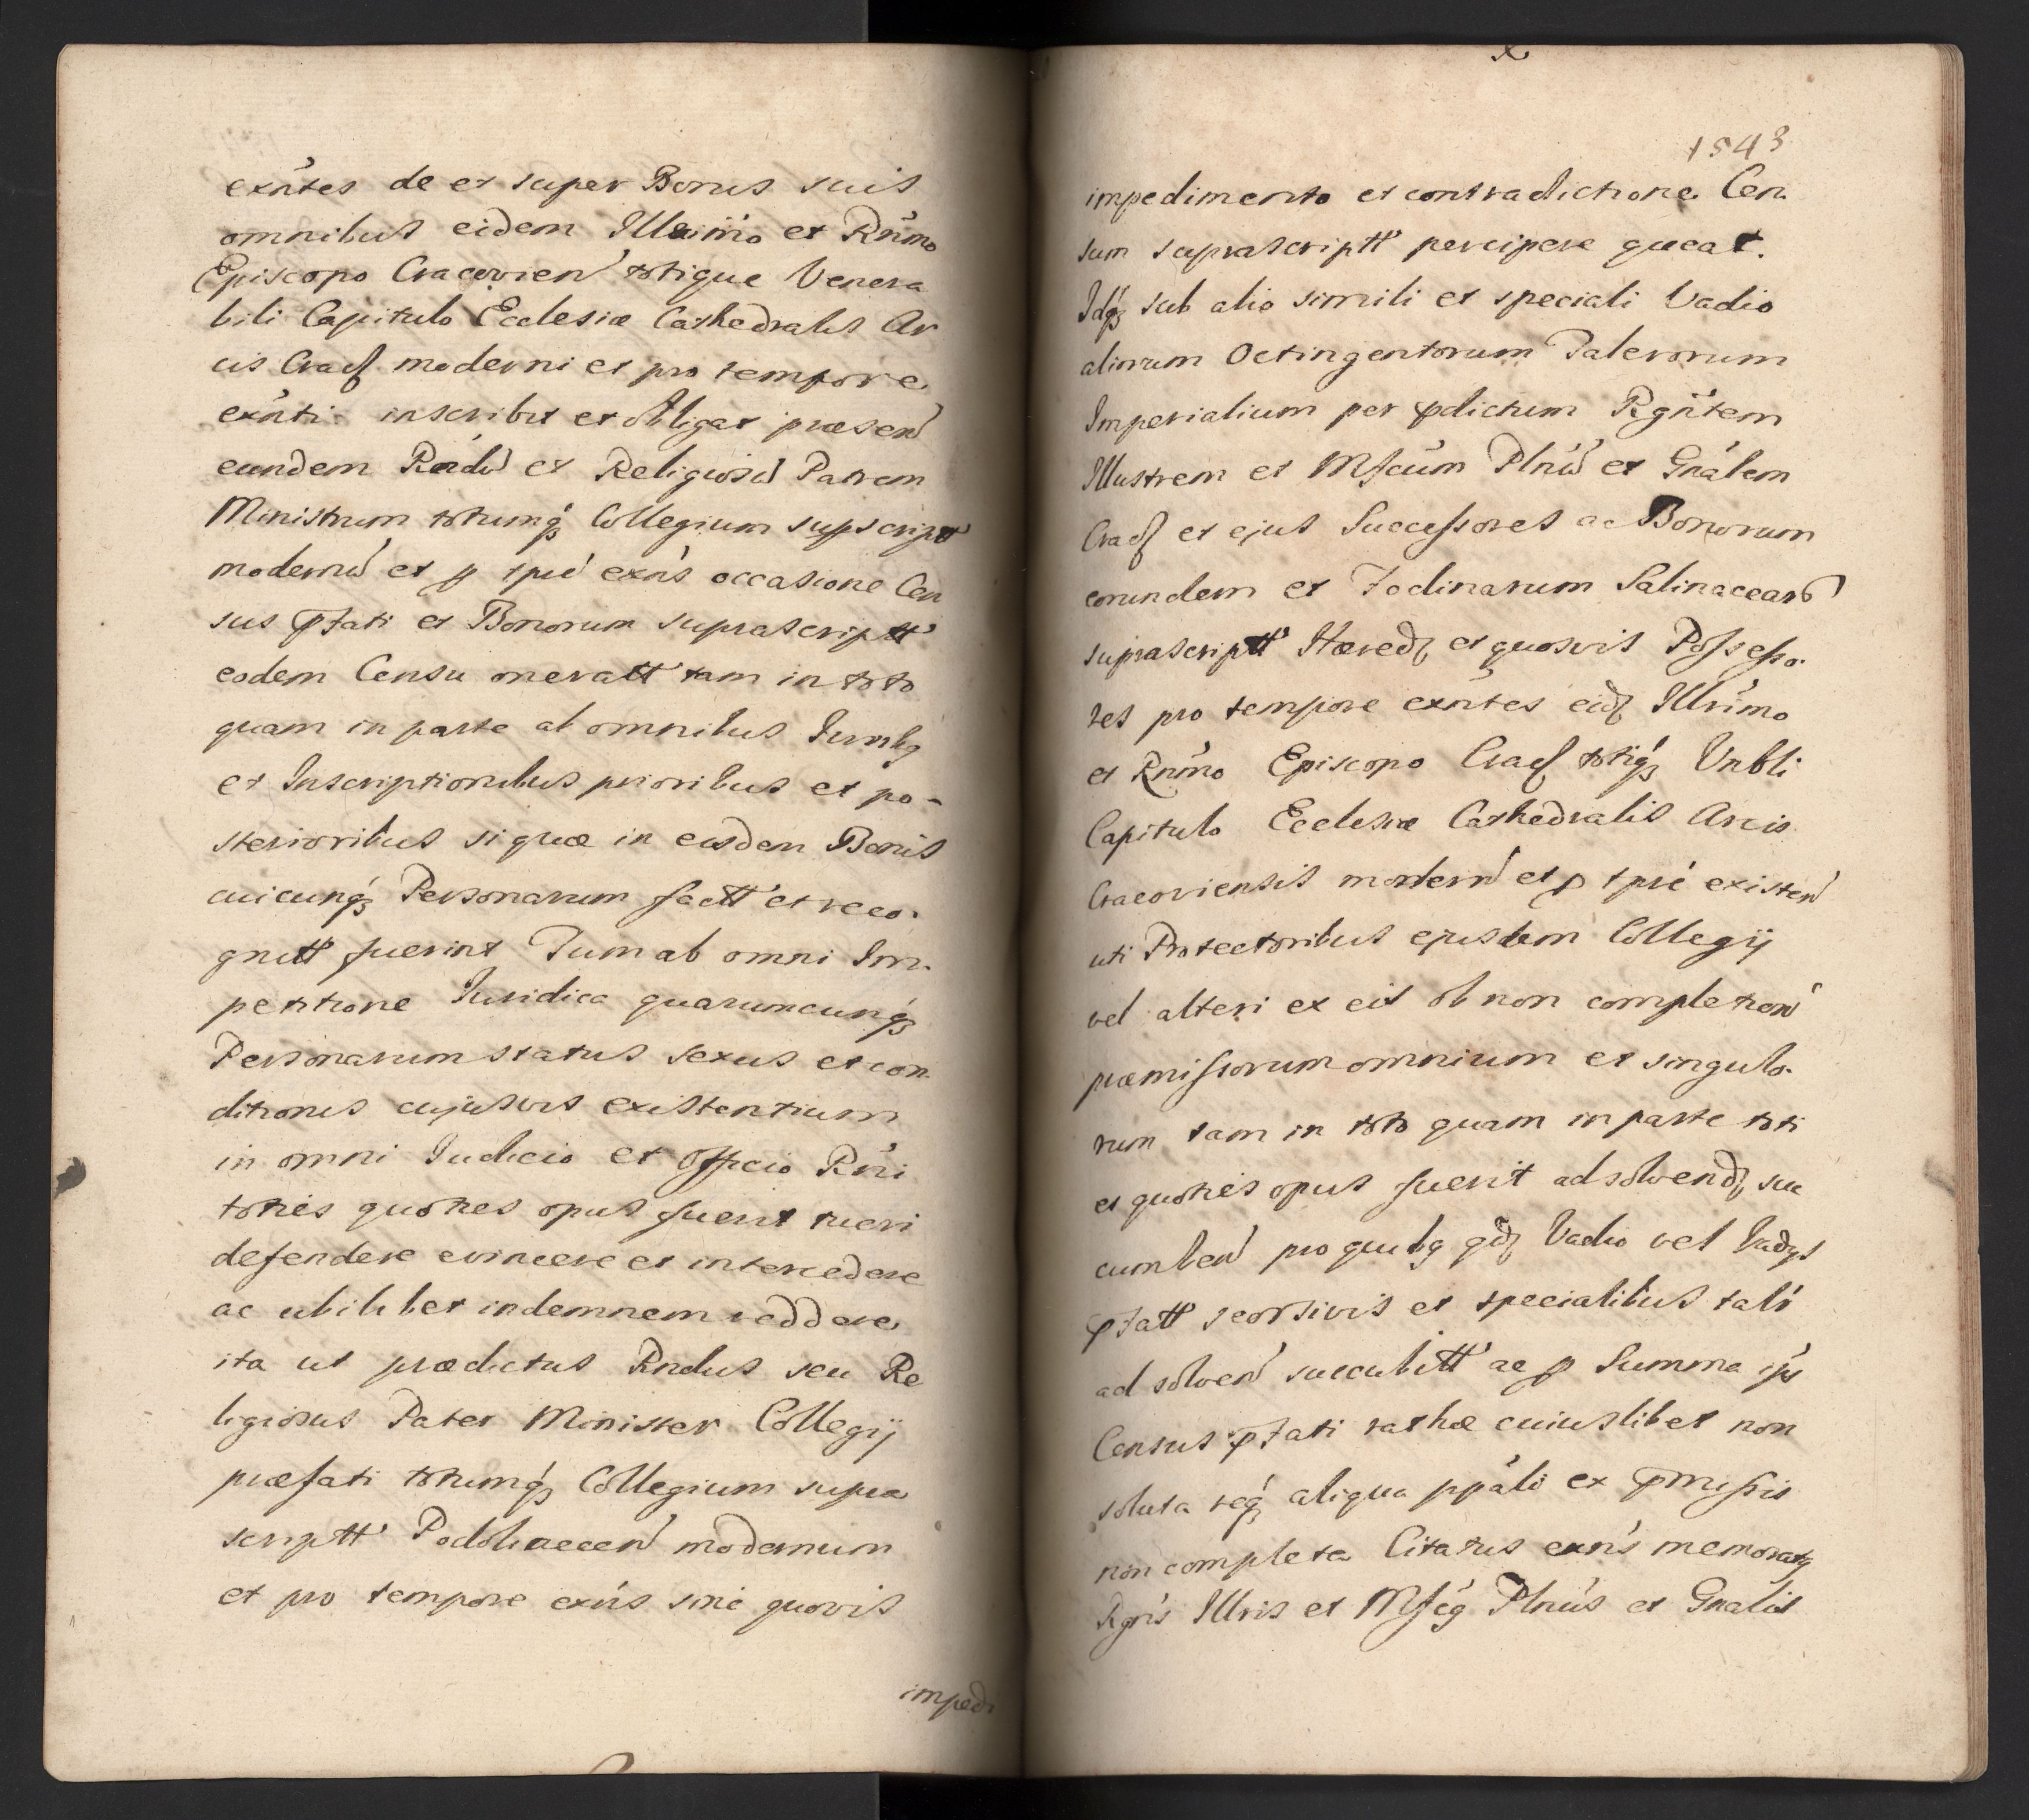 exńtes de et super Bonis suis
omnibus eidem Illmo et Rńmo
Episcopo Cracovien totique Venera
bili Capitulo Ecclesiæ Cathedralis Ar
cis Crac moderni et pro tempore
exńti inscribit et obligat præsen
eundem Rndu et Religiosu Patrem
Ministrum totumq Collegium supscript
modernu et p tpre exńs occasione Cen
sus pfati et Bonorum suprascriptt
eodem Censu oneratt tam in toto
quam in parte ab omnibus Iuribq
et Inscriptionibus prioribus et po-
sterioribus si quæ in eisdem Bonis
cuicunq Personarum factt et reco-
gnitt fuerint Tum ab omni Im-
petitione Iuridica quarumcunq
Personarum status sexus et con-
ditionis cujusvis existentium
in omni Iudicio et Officio Rńi
toties quoties opus fuerit tueri
defendere evincere et intercedere
ac ubilibet indemnem reddere
ita ut prædictus Rndus seu Re
ligiosus Pater Minister Collegij
præfati totumq Collegium supra
scriptt Podolinecen modernum
et pro tempore exńs sine quovis
impedi
1543
impedimento et contradictione Cen
sum suprascriptt percipere queat.
Idq sub alio simili et speciali Vadio
aliorum Octingentorum Talerorum
Imperialium per pdictum Rgńtem
Illustrem et Mfcum Plnu et Gnalem
Crac et ejus Successores ac Bonorum
eorundem et Fodinarum Salinacear
suprascriptt Hæred et quosvis Possesso-
res pro tempore exńtes eid Illrimo
et Rnmo Episcopo Crac totiq Vnbli
Capitulo Ecclesiæ Cathedralis Arcis
Cracoviensis modern et p tpre existen
uti Protectoribus ejusdem Collegij
vel alteri ex eis ob non completion
præmissorum omnium et singulo-
rum tam in toto quam in parte toti
es quoties opus fuerit ad solvend suc
cumben pro quibq qd Vadio vel Vadys
pfatt seorsivis et specialibus talr
ad solven succubitt ac p Summa ips
Census pfati rathæ cuiuslibet non
soluta req aliqua ppali ex pmissis
non completa Citatus exńs memoratq
Rgńs Illris et Mfcq Plnus et Gnalis